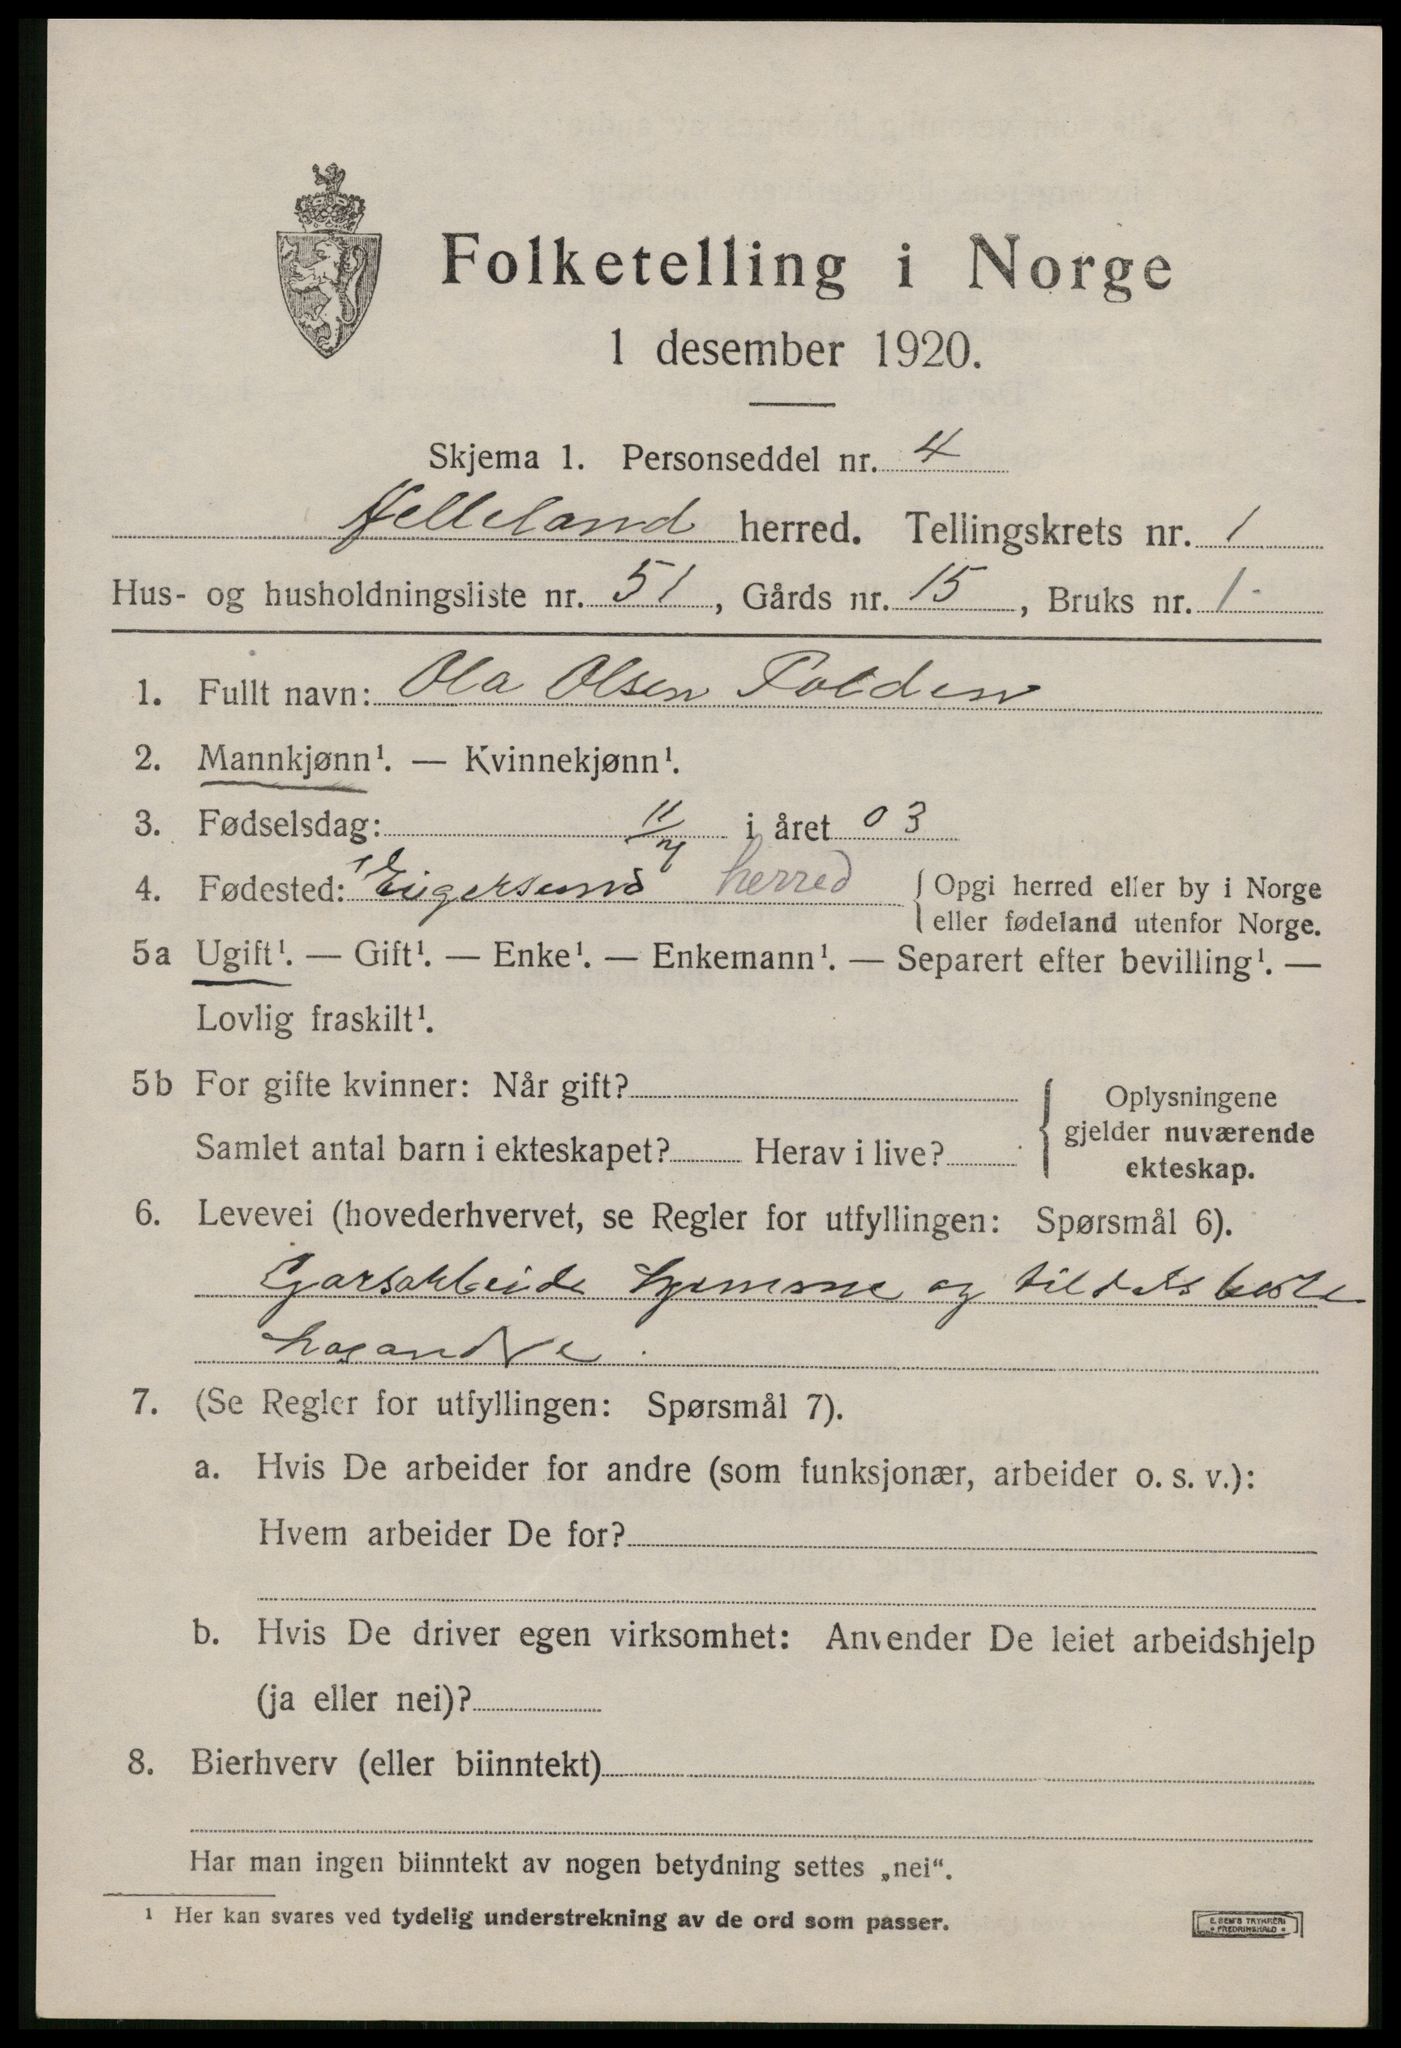 Folketelling i Norge
1 desember 1920.
Skjema 1. Personseddel nr. 4
Helleland herred. Tellingskrets nr. 1
Hus- og husholdningsliste nr. 51, Gårds nr. 15, Bruks nr. 1
1. Fullt navn: Ola Olsen
2. Mannkjønn¹. — Kvinnekjønn¹.
3. Fødselsdag: 11/4 i året 03
4. Fødested: Eigersund herred { Opgi herred eller by i Norge
eller fødeland utenfor Norge.
5a Ugift¹. — Gift¹. — Enke¹. — Enkemann¹. — Separert efter bevilling¹. —
Lovlig fraskilt¹.
5b For gifte kvinner: Når gift?
Samlet antal barn i ekteskapet? Herav i live?
Oplysningene
gjelder nuværende
ekteskap.
6. Levevei (hovederhvervet, se Regler for utfyllingen: Spørsmål 6).
Garsarbeide hjemme og tildels
hos andre.
7. (Se Regler for utfyllingen: Spørsmål 7).
a. Hvis De arbeider for andre (som funksjonær, arbeider o. s. v.):
Hvem arbeider De for?
b. Hvis De driver egen virksomhet: Anvender De leiet arbeidshjelp
(ja eller nei)?
8. Bierhverv (eller biinntekt)
Har man ingen biinntekt av nogen betydning settes „nei“.
¹ Her kan svares ved tydelig understrekning av de ord som passer.
E. SEM'S TRYKKERI
• FREDRIKSHALD •